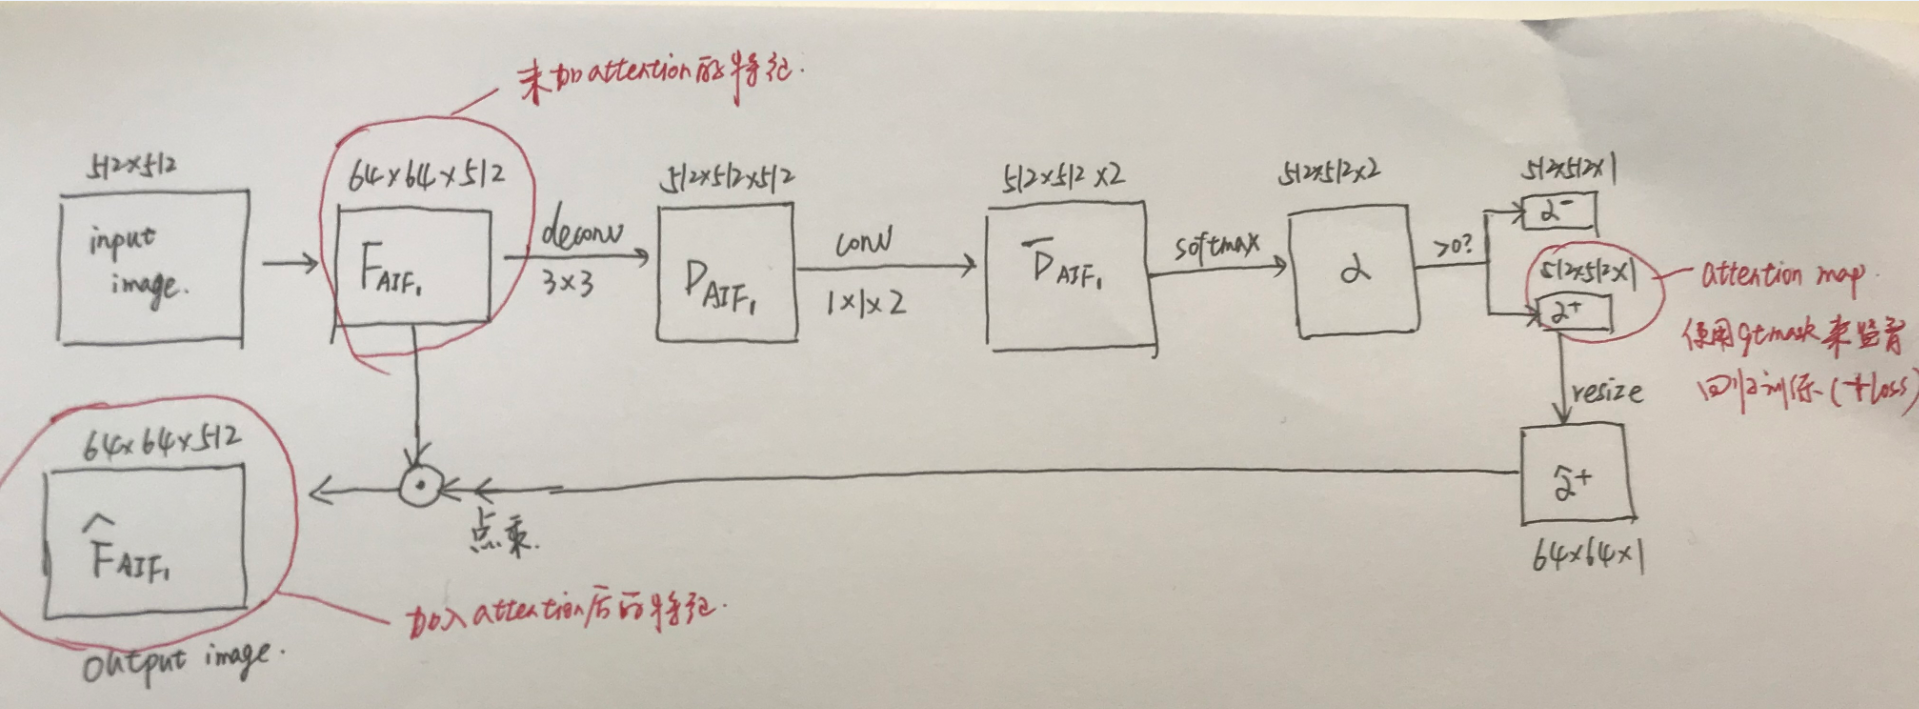 未加attention的特征.
512×512
input
image.
64×64×512
F_AIF₁
deconv
3×3
512×512×512
D_AIF₁
conv
1×1×2
512×512×2
D̅_AIF₁
softmax
512×512×2
α
>0?
512×512×1
α⁻
512×512×1
α⁺
attention map.
使用gtmask来监督
回归训练(+loss)
resize
α̂⁺
64×64×1
点乘.
64×64×512
F̂_AIF₁
加入attention后的特征.
output image.